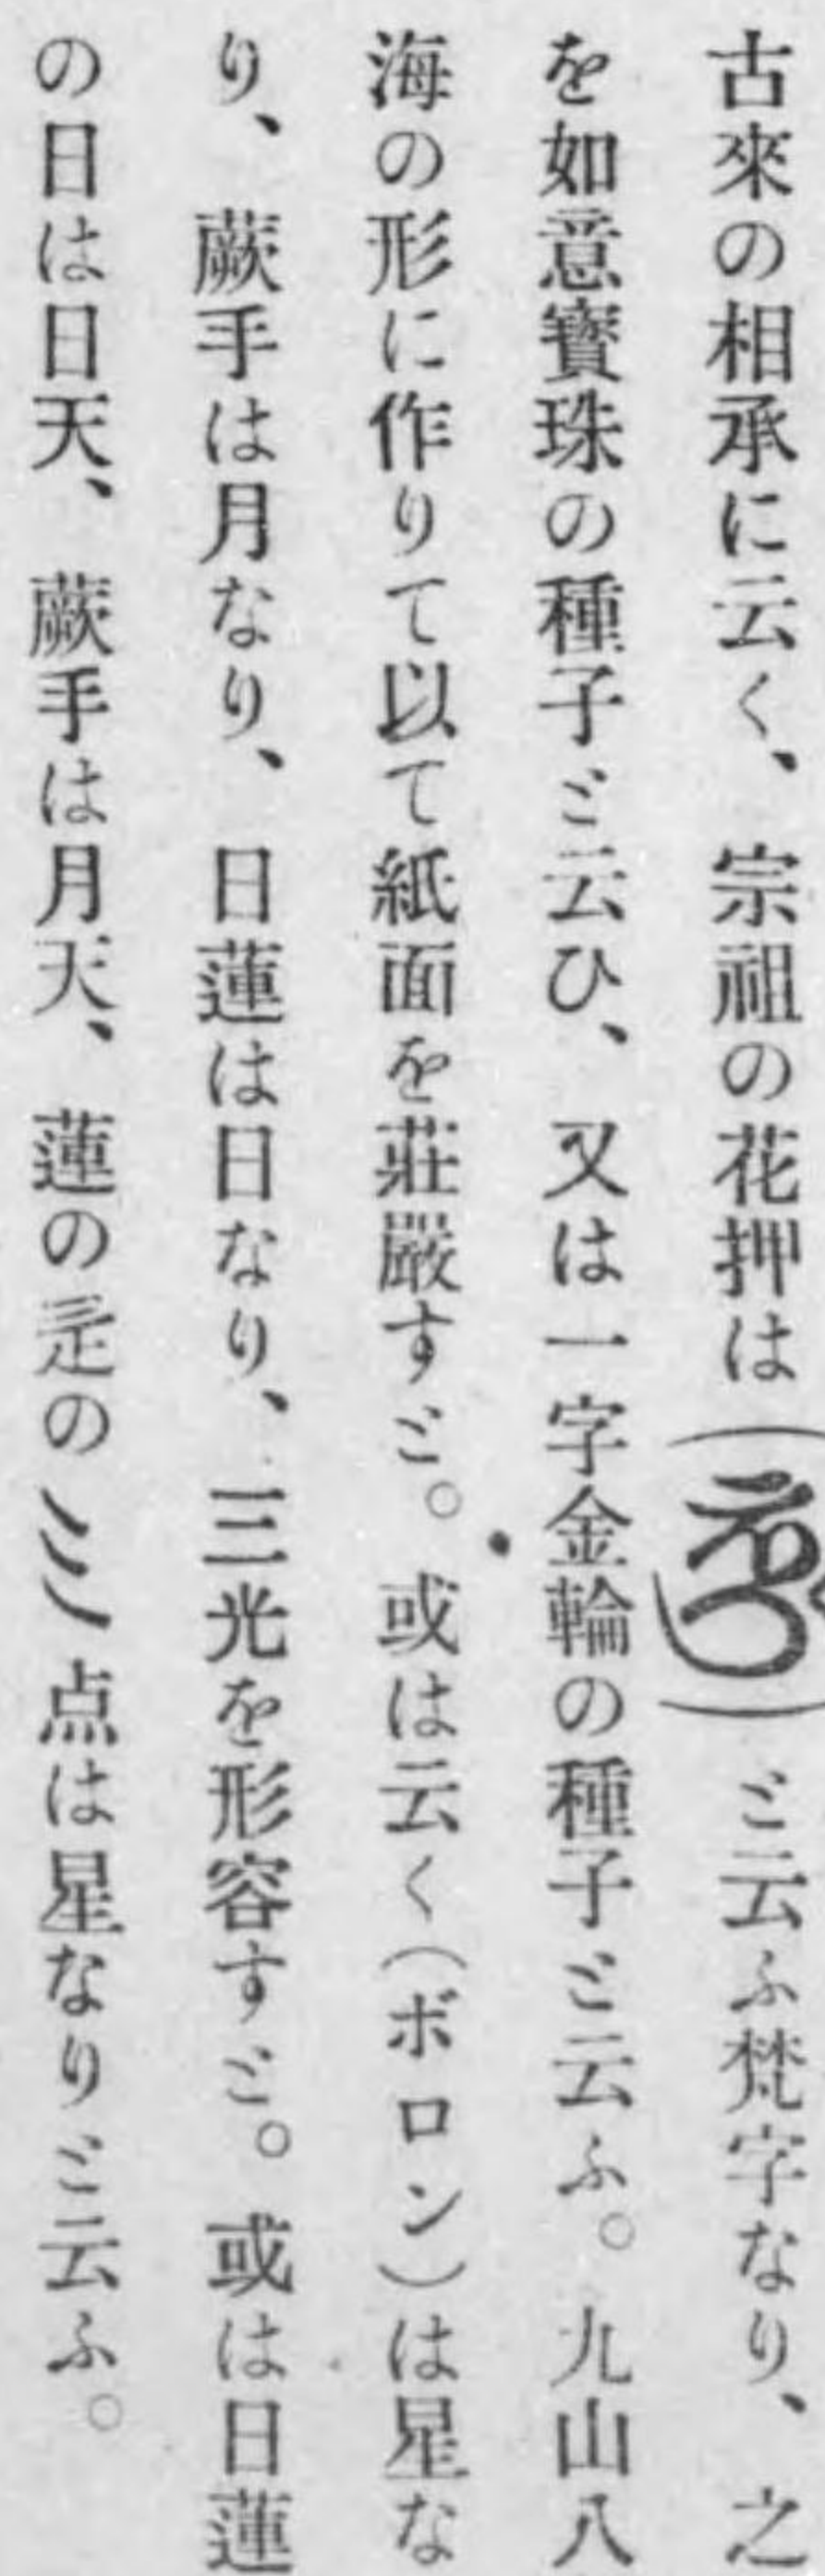 古來の相承に云く、宗祖の花押は（　）と云ふ梵字なり、之
を如意寳珠の種子と云ひ、又は一字金輪の種子と云ふ。九山八
海の形に作りて以て紙面を莊嚴すと。或は云く（ボロン）は星な
り、蕨手は月なり、日蓮は日なり、三光を形容すと。或は日蓮
の日は日天、蕨手は月天、蓮の辵の〻点は星なりと云ふ。